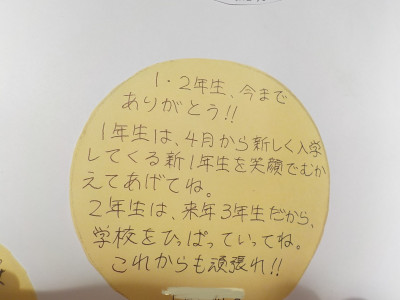 1・2年生、今まで
ありがとう!!
1年生は、4月から新しく入学
してくる新1年生を笑顔でむか
えてあげてね。
2年生は、来年3年生だから、
学校をひっぱっていってね。
これからも頑張れ!!